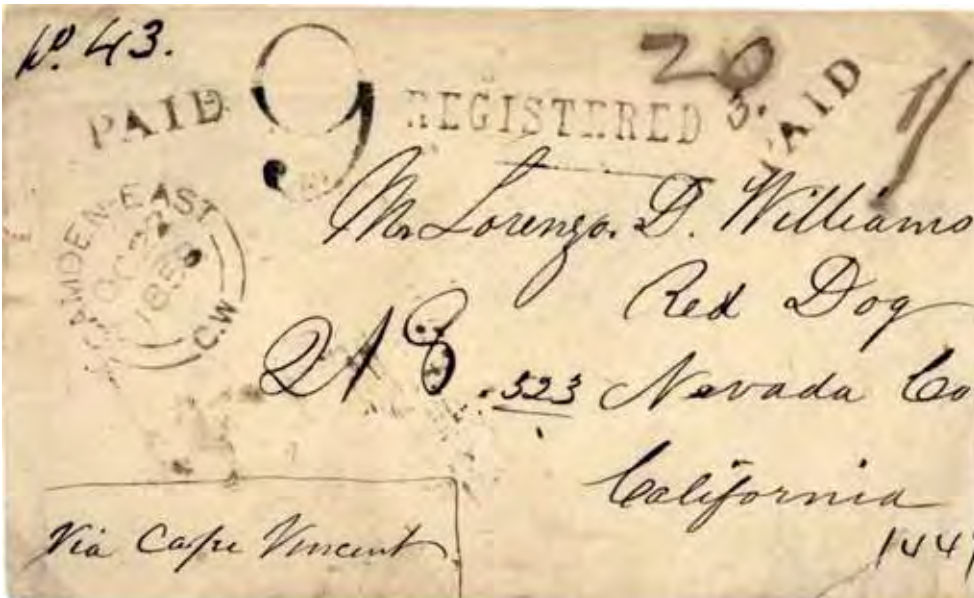 No. 43.
PAID 9 REGISTERED 3. PAID
20
CAMDEN-EAST
OC 22
C.W
Mr Lorenzo. D. Williams
Red Dog
218 .523 Nevada Co
California
Via Cape Vincent
1441